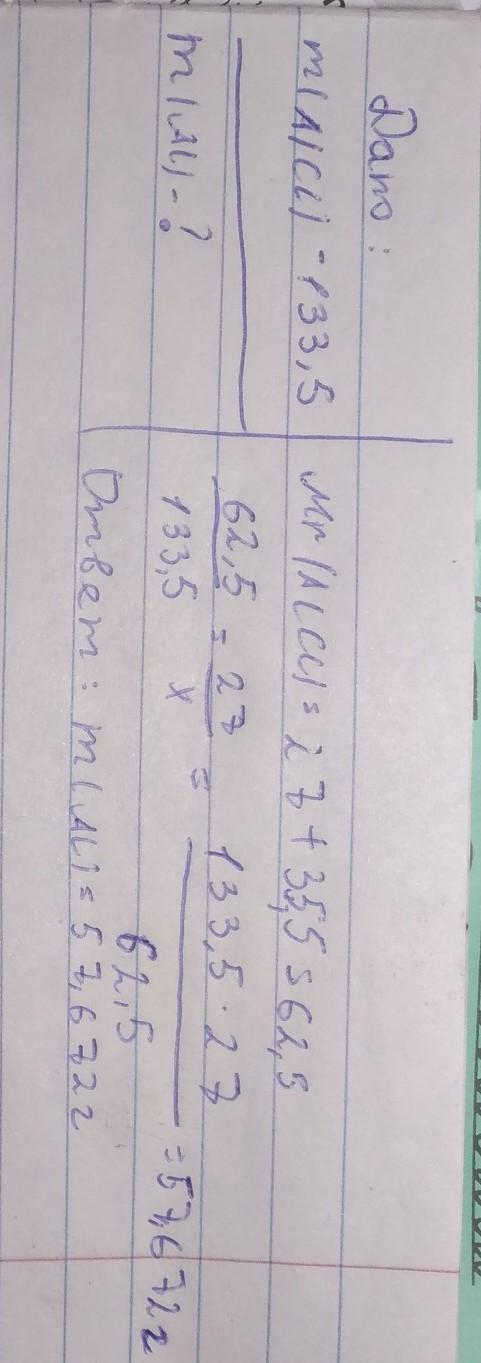 Дано:
m(AlCl) - 133,5
m(Al) - ?
Mr(AlCl) = 27 + 35,5 = 62,5
62,5 = 27 = 133,5 · 27 = 57,672г
133,5 x 62,5
Ответ: m(Al) = 57,672г